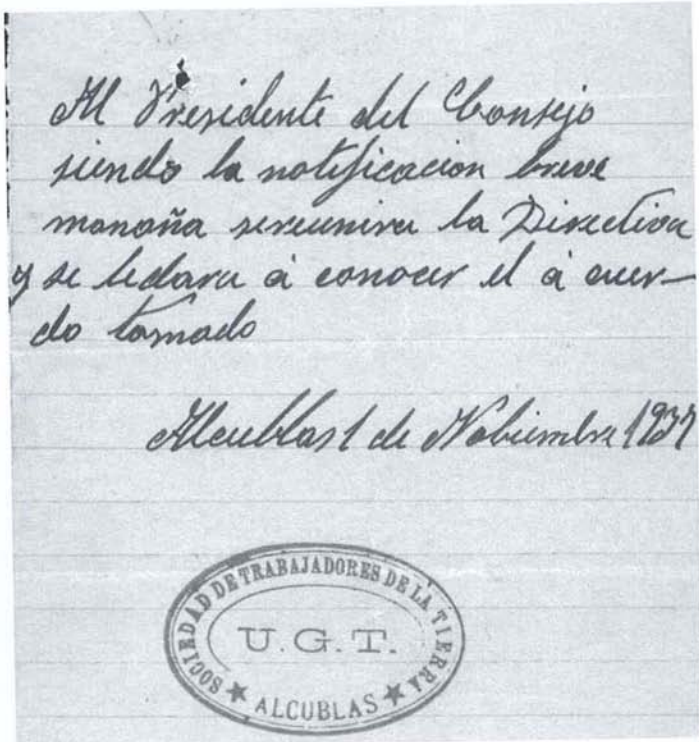 Al Presidente del Consejo
siendo la notificacion breve
manaña sereunira la Directiva
y se ledara à conocer el à cuer-
do tomado
Alcublas 1 de Nobiembre 1937
SOCIEDAD DE TRABAJADORES DE LA TIERRA
U.G.T.
★ ALCUBLAS ★